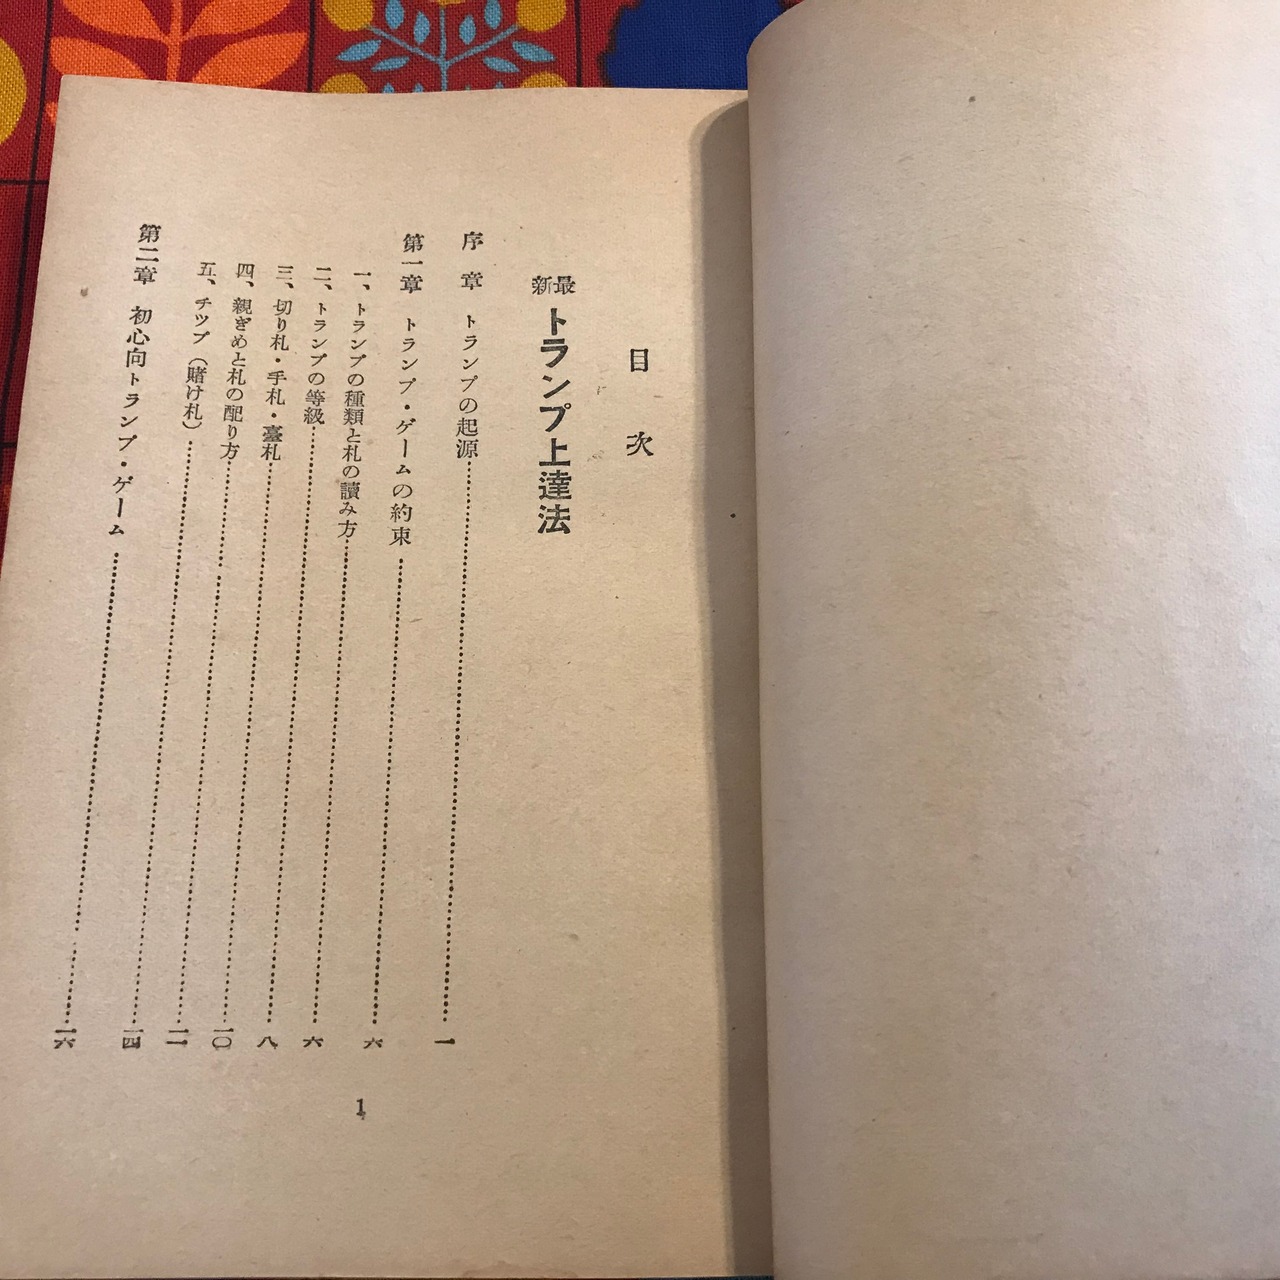 目次
最新 トランプ上達法
序章 トランプの起源……一
第一章 トランプ・ゲームの約束……六
一、トランプの種類と札の讀み方……六
二、トランプの等級……八
三、切り札・手札・臺札……一〇
四、親ぎめと札の配り方……一二
五、チップ（賭け札）……一四
第二章 初心向トランプ・ゲーム……一六
1